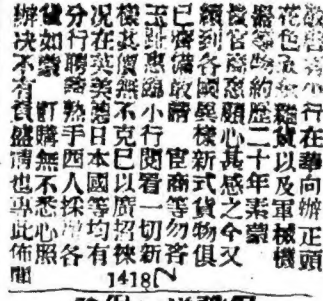 敬啓者小行在華向辦正頭
花色疋頭雜貨以及軍械機
器等物約歷二十年素蒙
後官商惠顧心甚感之今又
續到各國異樣新式貨物俱
已齊備敬請 官商等勿吝
玉趾惠臨小行閱看一切新
樣其價無不克己以廣招徠
况在英美德日本國等均有
分行聘請熟手西人採辦各
貨如蒙 訂購無不悉心照
辦决不有負盛情也專此佈聞
1418